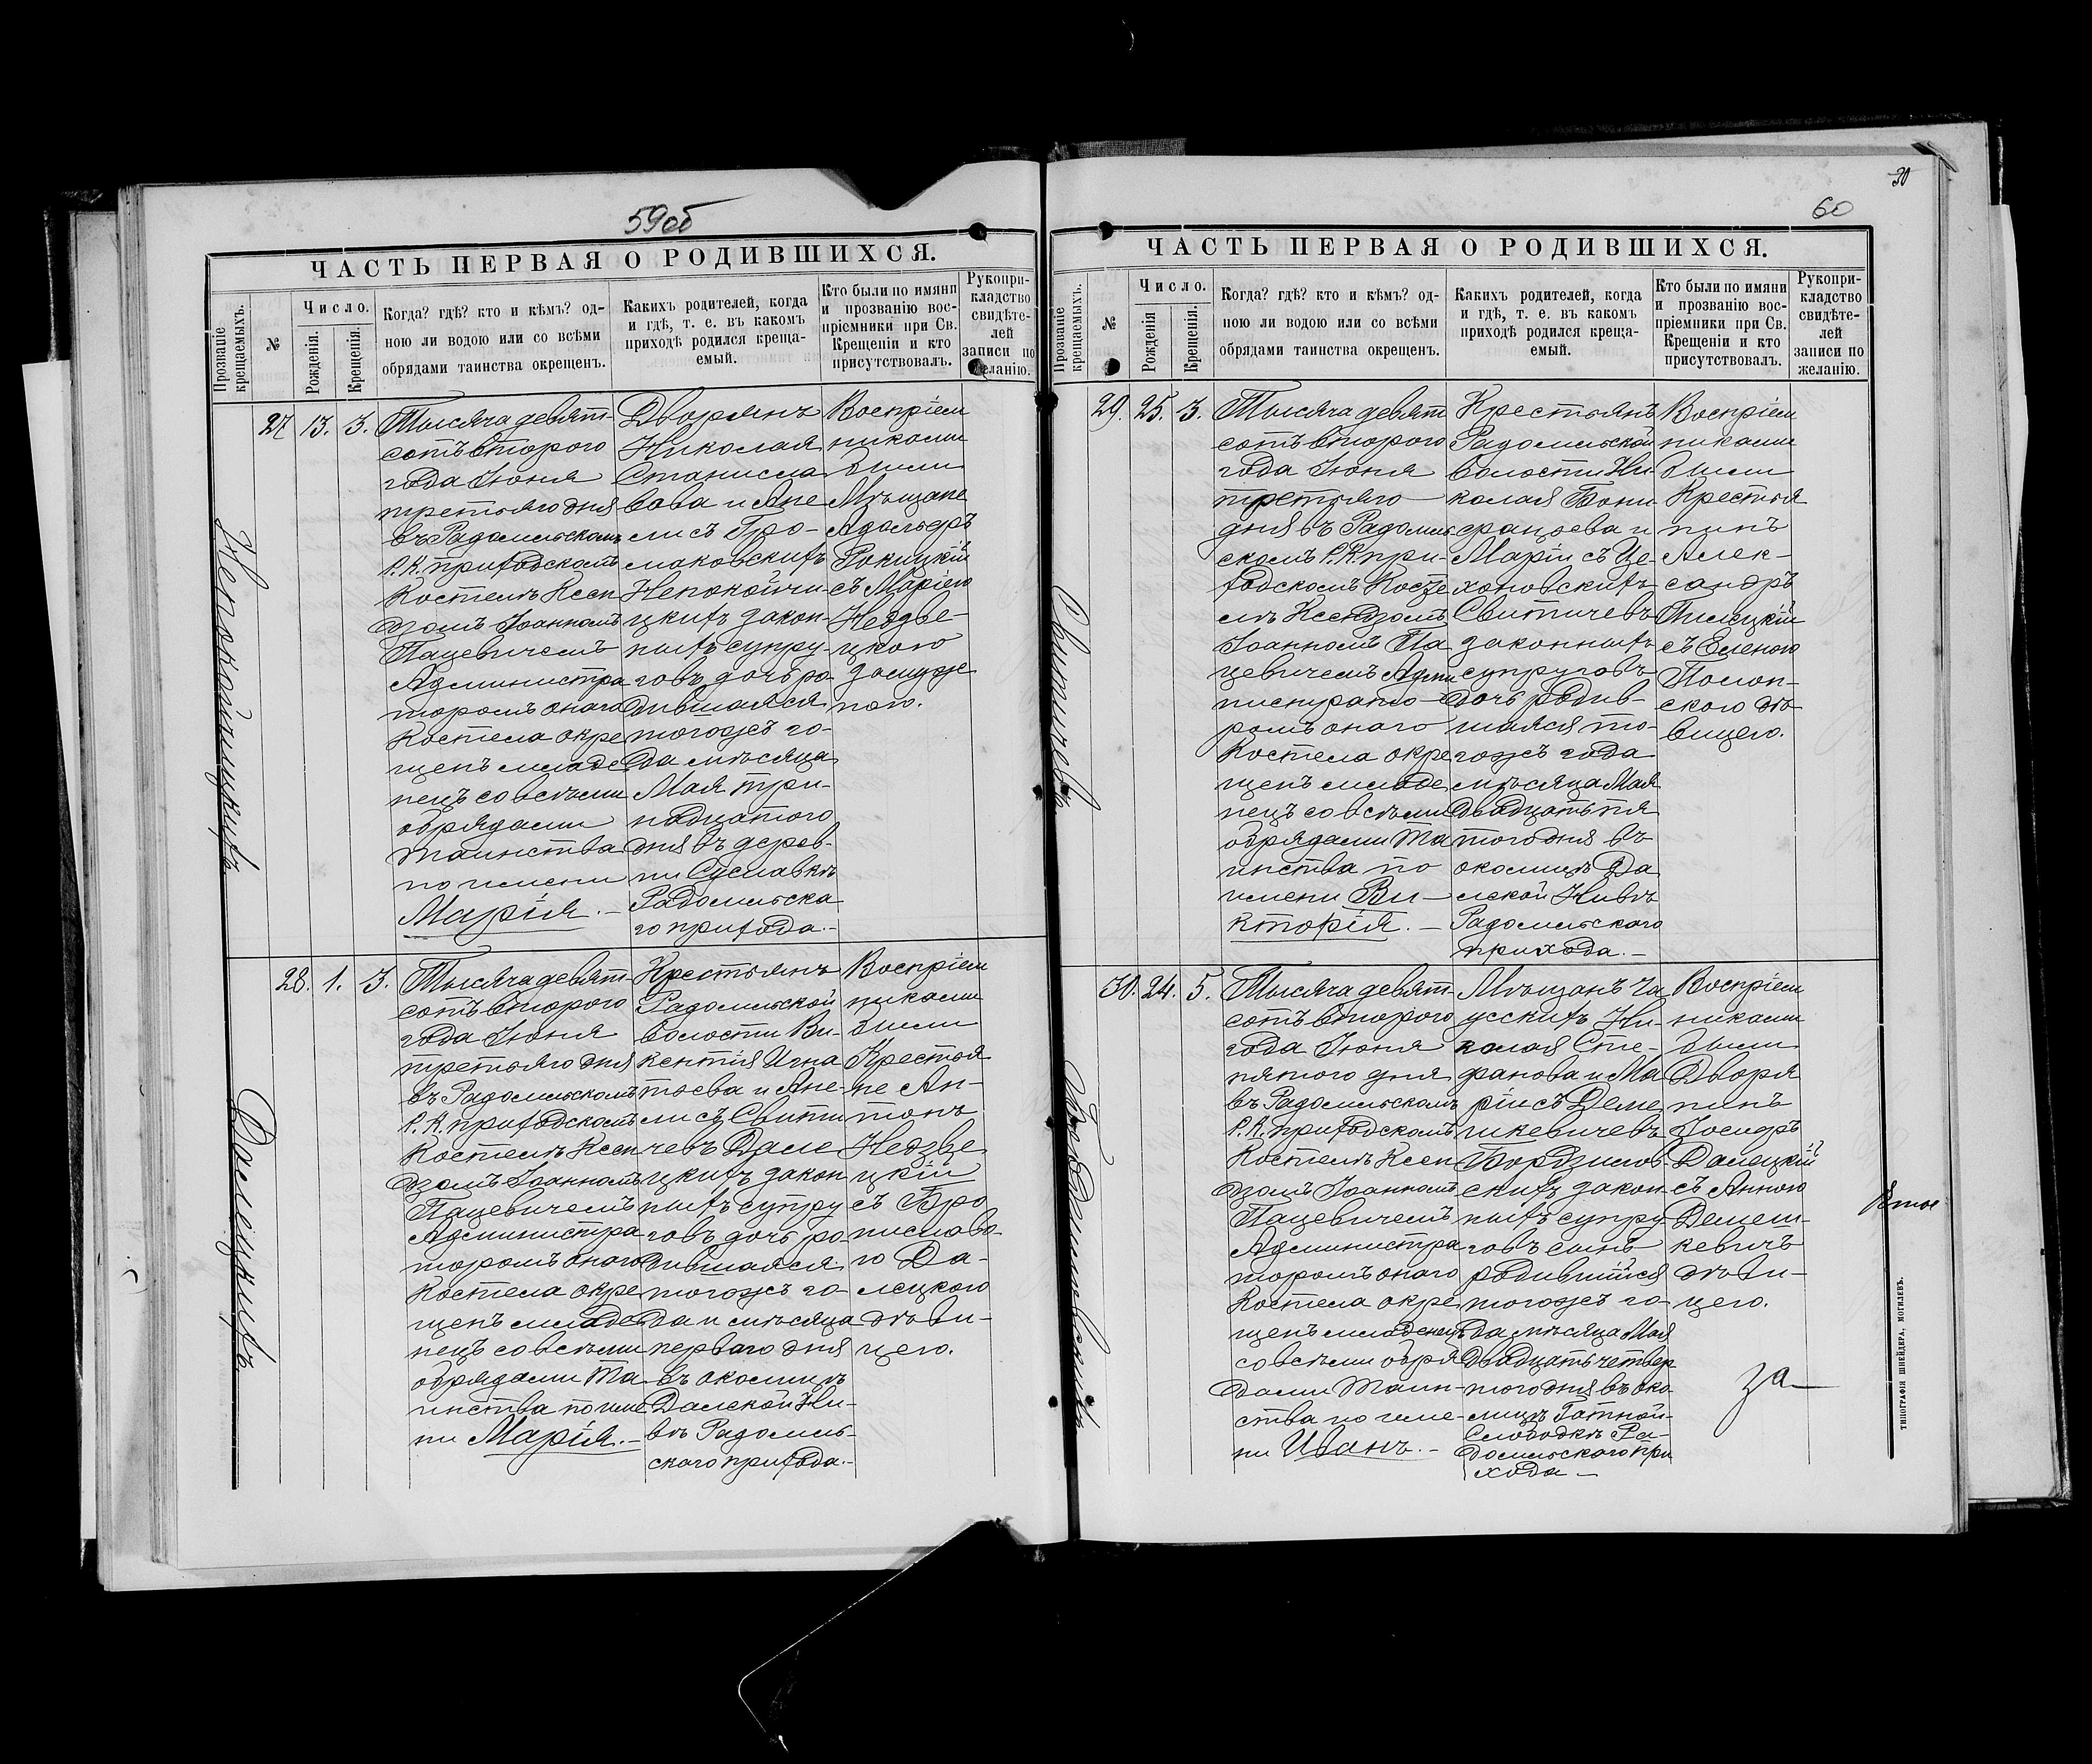 59об
ЧАСТЬ ПЕРВАЯ О РОДИВШИХСЯ.
Прозваніе крещаемыхъ.
№
Число.
Рожденія.
Крещенія.
Когда? гдѣ? кто и кѣмъ? од-
ною ли водою или со всѣми
обрядами таинства окрещенъ.
Какихъ родителей, когда
и гдѣ, т. е. въ какомъ
приходѣ родился креща-
емый.
Кто были по имяни
и прозванію вос-
пріемники при Св.
Крещеніи и кто
присутствовалъ.
Рукопри-
кладство
свидѣте-
лей
записи по
желанію.
Непокойчицкихъ
27
13.
3.
Тысяча девять
сотъ второго
года Іюня
третьяго дня
въ Радомльскомъ
Р. К. приходскомъ
Костелѣ Ксен
дзомъ Іоанномъ
Пацевичемъ
Администра
торомъ онаго
Костела окре
щенъ младе
нецъ со всѣми
обрядами
таинства
по имени
Марія. –
Дворянъ
Николая
Станисла
вова и Ане
ли съ Гро-
маковскихъ
Непокойчи-
цкихъ закон-
ныхъ супру-
говъ дочь ро
дившаяся
тогожъ го-
да мѣсяца
Мая три-
надцатого
дня въ дерев-
ни Суславкѣ
Радомльска
го прихода.–
Воспріем
никами
были
Мѣщане
Адольфъ
Рокицкій
съ Маріею
Недзве-
цкою
замуже
нею.
Далецкихъ
28.
1.
3.
Тысяча девят-
сотъ второго
года Іюня
третьяго дня
въ Радомльскомъ
Р. К. приходскомъ
Костелѣ Ксен
дзомъ Іоанномъ
Пацевичемъ
Администра
торомъ онаго
Костела окре
щенъ младе
нецъ со всѣми
обрядами та-
инства по име
ни Марія.–
Крестьянъ
Радомльской
волости Ви-
кентія Игна
тьева и Ане-
ли съ Свити
чевъ Дале
цкихъ закон
ныхъ супру
говъ дочь ро
дившаяся
тогожъ го-
да и мѣсяца
перваго дня
въ околицѣ
Далекой Ни-
вѣ Радомль-
скаго прихода.–
Воспріем
никами
были
Крестья
не Ан-
тонъ
Недзве
цкій
съ Бро
ниславо-
ю Да-
лецкою
дѣви-
цею.
30
60
ЧАСТЬ ПЕРВАЯ О РОДИВШИХСЯ.
Прозваніе крещаемыхъ.
№
Число.
Рожденія
Крещенія.
Когда? гдѣ? кто и кѣмъ? од-
ною ли водою или со всѣми
обрядами таинства окрещенъ.
Какихъ родителей, когда
и гдѣ, т. е. въ какомъ
приходѣ родился креща-
емый.
Кто были по имяни
и прозванію вос-
пріемники при Св.
Крещеніи и кто
присутствовалъ.
Рукопри-
кладство
свидѣте-
лей
записи по
желанію.
Свитичевъ
29.
25.
3.
Тысяча девят
сотъ второго
года Іюня
третьяго
дня въ Радомль
скомъ Р. К. при-
ходскомъ Косте
лѣ Ксендзомъ
Іоанномъ Па
цевичемъ Адми
нистрато-
ромъ онаго
Костела окре
щенъ младе
нецъ со всѣми
обрядами та
инства по
имени Ви-
кторія. –
Крестьянъ
Радомльской
волости Ни
колая Бони
фацьева и
Маріи съ Це-
хановскихъ
Свитичевъ
законныхъ
супруговъ
дочь родив-
шаяся то-
гожъ года
мѣсяца Мая
двадцать пя
того дня въ
околицѣ Да
лекой Нивѣ
Радомльского
прихода.–
Воспріем
никами
были
Крестья
нинъ
Алек-
сандръ
Пилецкій
съ Еленою
Полон-
скою дѣ-
вицею.
30.
24.
5.
Тысяча девят-
сотъ второго
года Іюня
пятого дня
въ Радомльскомъ
Р. К. приходскомъ
Костелѣ Ксен
дзомъ Іоанномъ
Пацевичемъ
Администра
торомъ онаго
Костела окре
щенъ младенецъ
со всѣми обря
дами Таин-
ства по име-
ни Иванъ. –
Мѣщанъ Ча
усскихъ Ни-
колая Сте-
фанова и Ма
ріи съ Деме
шкевичевъ
Бордзилов-
скихъ закон-
ныхъ супру
говъ сынъ
родившійся
тогожъ го-
да мѣсяца Мая
двадцать четвер
того дня въ око-
лицѣ Гатной-
Слободкѣ Ра-
домльского при
хода –
Воспріем
никами
были
Дворя
нинъ
Іосифъ
Далецкій
съ Анною
Демеш-
кевичъ
дѣви-
цею.
за
ТИПОГРАФІЯ ШНЕЙДЕРА, МОГИЛЕВЪ.